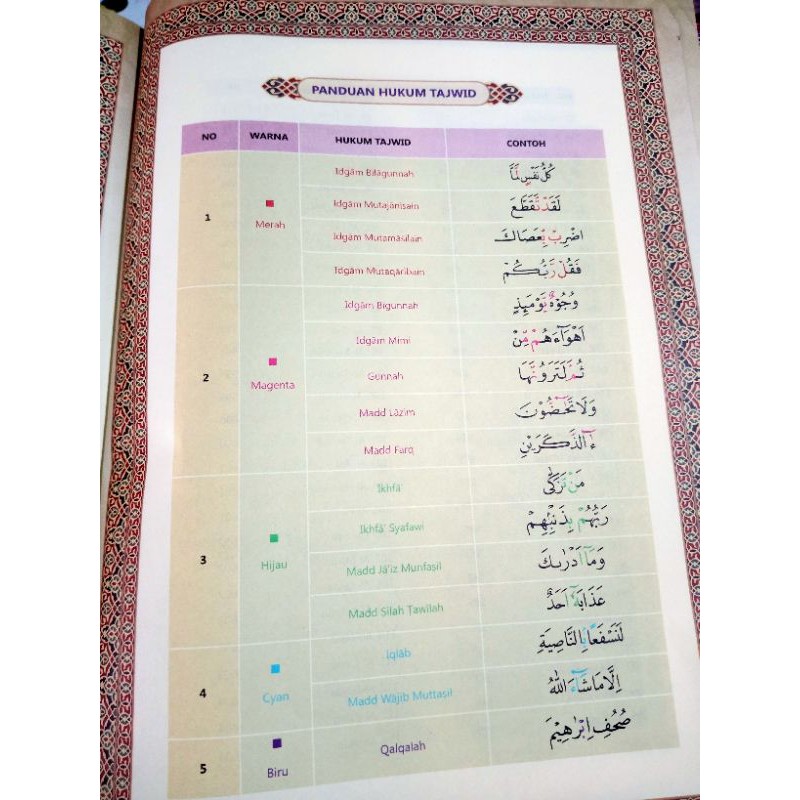 PANDUAN HUKUM TAJWID
NO WARNA HUKUM TAJWID CONTOH
1 Merah
Idgām Bilāgunnah كُلُّ نَفْسٍ لَّمَّا
Idgām Mutajānisain لَقَدْ تَّقَطَّعَ
Idgām Mutamāṡilain اضْرِبْ بِّعَصَاكَ
Idgām Mutaqāribain فَقُلْ رَّبُّكُمْ
2 Magenta
Idgām Bigunnah وُجُوْهٌ يَّوْمَىِٕذٍ
Idgām Mimi اَهْوَاۤءَهُمْ مِّنْ
Gunnah ثُمَّ لَتَرَوُنَّهَا
Madd Lāzim وَلَا تَحٰۤضُّوْنَ
Madd Farq ءٰۤالذَّكَرَيْنِ
3 Hijau
Ikhfā' مَنْ تَزَكّٰى
Ikhfā' Syafawi رَبُّهُمْ بِذَنْبِهِمْ
Madd Jā'iz Munfaṣil وَمَآ اَدْرٰىكَ
Madd Ṣilah Ṭawīlah عَذَابَهٗٓ اَحَدٌ
4 Cyan
Iqlāb لَنَسْفَعًاۢ بِالنَّاصِيَةِ
Madd Wājib Muttaṣil اِلَّا مَا شَاۤءَ اللّٰهُ
5 Biru
Qalqalah صُحُفِ اِبْرٰهِيْمَ